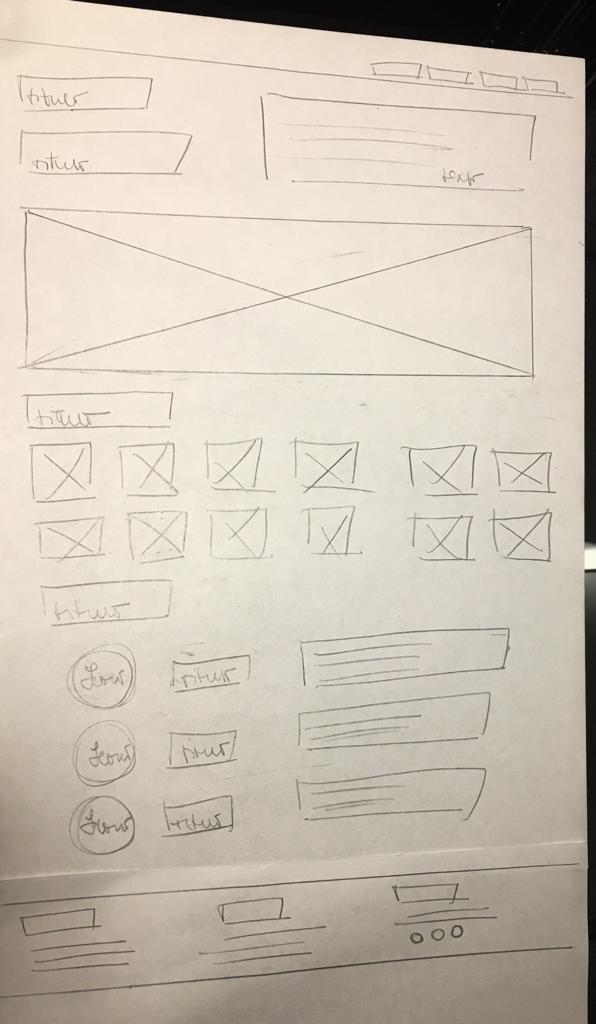 titulo
titulo
texto
titulo
titulo
Icono
titulo
Icono
titulo
Icono
titulo